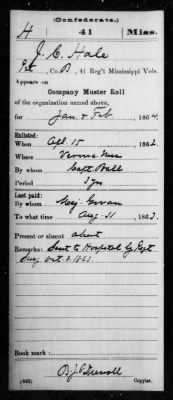 (Confederate.)
H 41 Miss.
J. C. Hale
Pvt, Co. B, 41 Reg't Mississippi Vols.
Appears on
Company Muster Roll
of the organization named above,
for Jan & Feb, 1864.
Enlisted:
When Apl 15, 1862.
Where Verona Miss
By whom Capt Ball
Period 3 yrs
Last paid:
By whom Maj. Govan
To what time Aug 31, 1863.
Present or absent absent
Remarks: Sent to Hospital by Regt
Surg Oct 3. 1863.
Book mark:
(642) Copyist.